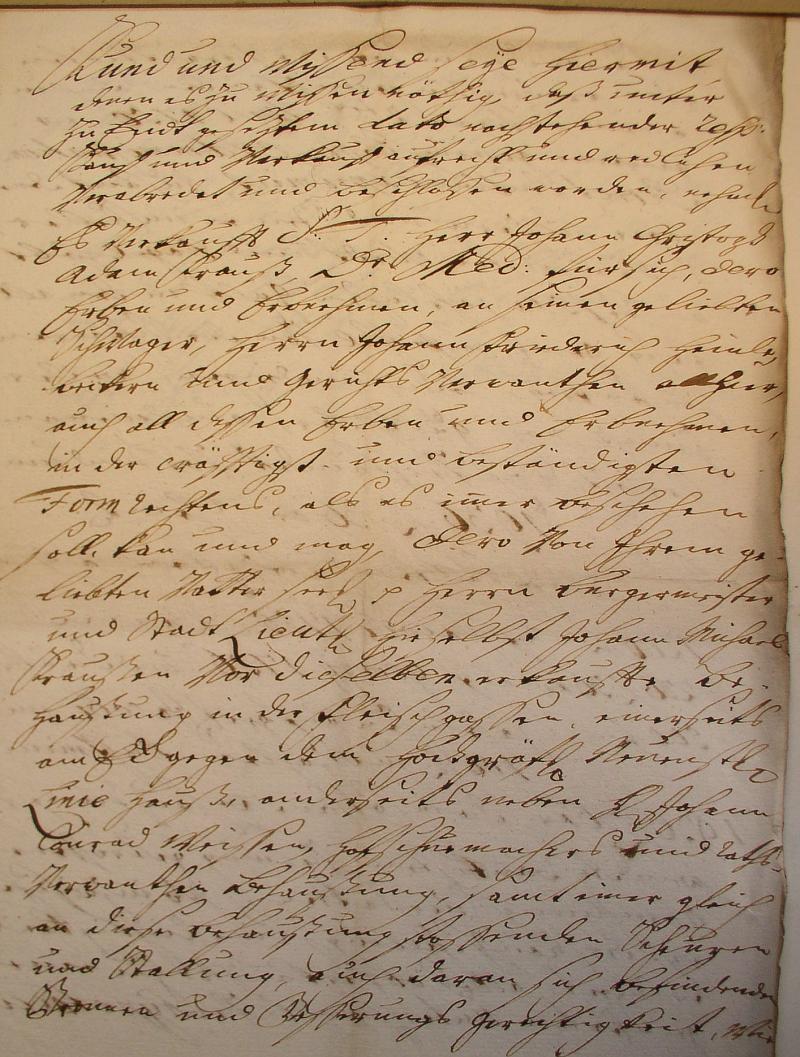 Kund und Wissend seye hiermit
denen es zu wissen nöthig, daß unter
zu Endt gesetztem dato nachstehender resp:
Kauff und Verkauff aufrecht und redlichen
Verabredet und beschlossen worden, nehml:
Es Verkaufft S. T. Herr Johann Christoph
Adam Krauß, Dr. Med: für sich, dero
Erben und Erbnehmen, an seinen geliebten
Schwager, Herrn Johann Friederich
und Gerichts Verwanthen allhier,
auch all dessen Erben und Erbnehmen,
in der cräfftigst- und beständigsten
Form Rechtens, als es imer beschehen
soll, kan und mag, dero Von Ihrem ge-
liebten Vatter seel. Herrn Burgermeister
und Stadt Lieut. hieselbst Johann Michael
Kraußen Vor dieselben erkauffte Be-
haußung in der Fleischgassen, einerseits
am Eck gegen dem Hochgräffl. Neuenst.
Hauß, anderseits neben H. Johann
Conrad Weissen, Hofschuemachers und Raths-
Verwanthen Behaußung, samt einer gleich
an diese Behaußung stossenden Scheuren
und Stallung, auch daran sich befindenden
Bronnen und Gerechtigkeit, wie